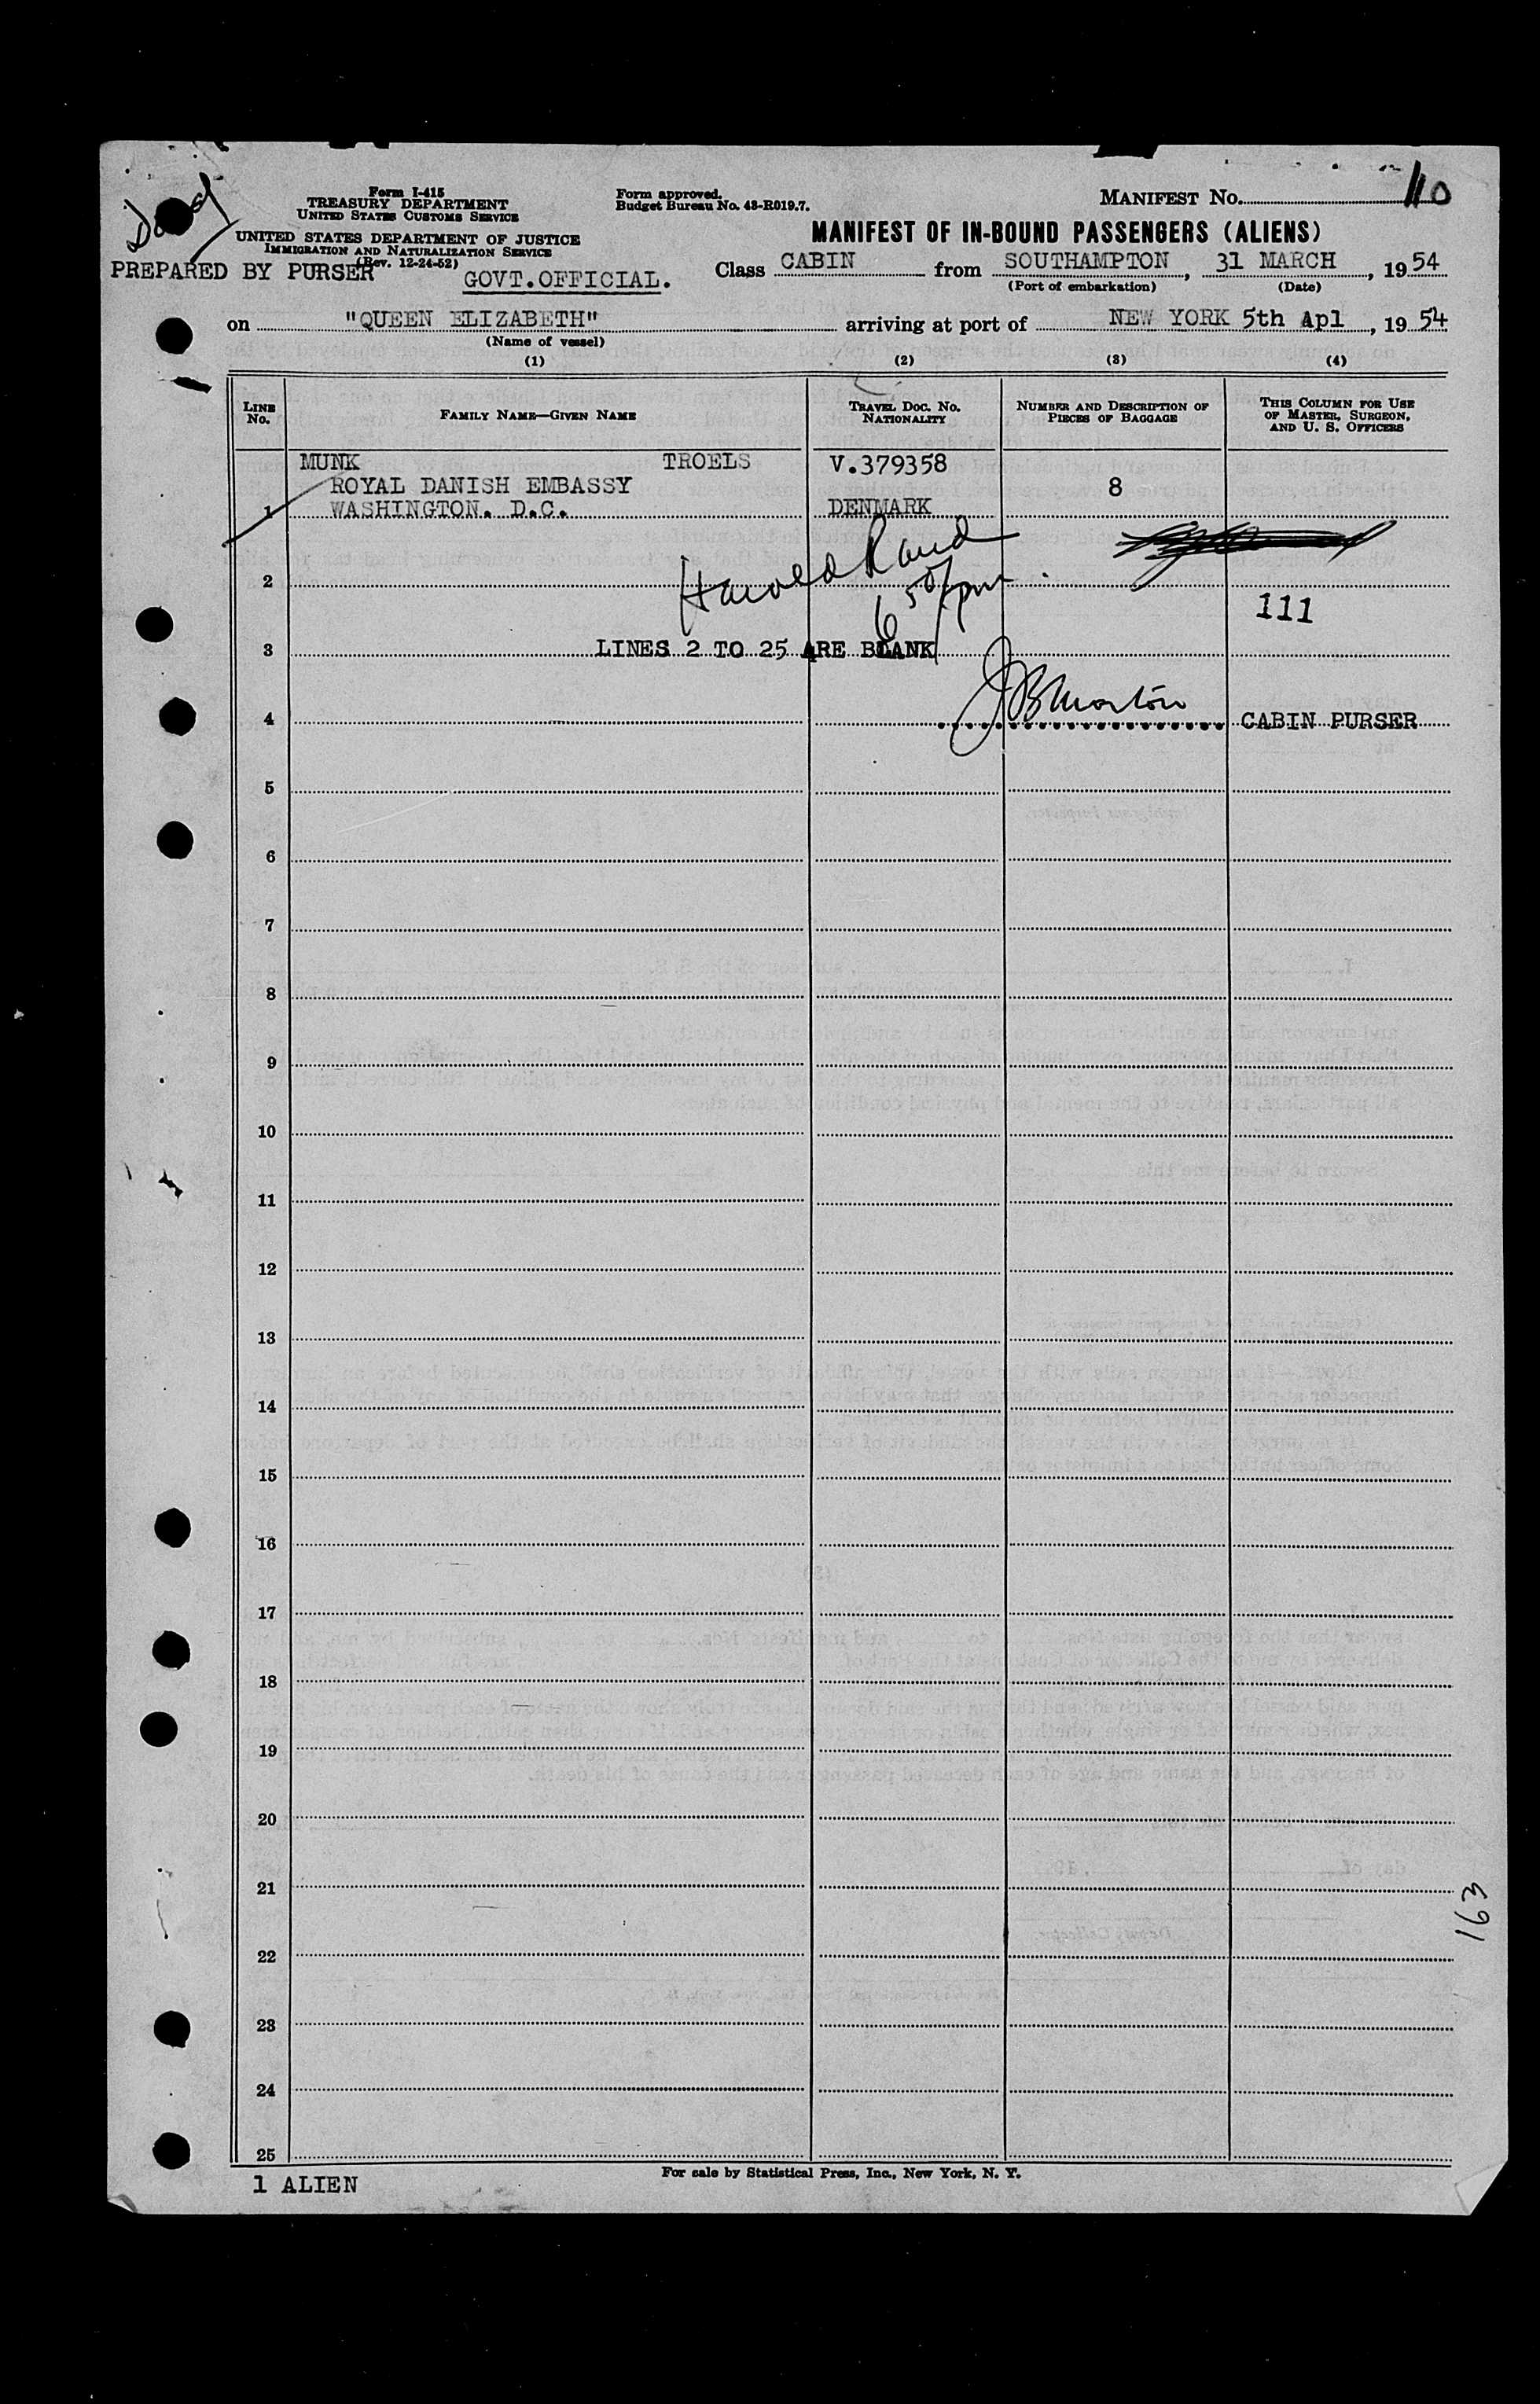 Form I-415
TREASURY DEPARTMENT
UNITED STATES CUSTOMS SERVICE
UNITED STATES DEPARTMENT OF JUSTICE
IMMIGRATION AND NATURALIZATION SERVICE
(Rev. 12-24-52)
PREPARED BY PURSER
GOVT.OFFICIAL.
Form approved.
Budget Bureau No. 43-R019.7.
MANIFEST No. 110
MANIFEST OF IN-BOUND PASSENGERS (ALIENS)
Class CABIN from SOUTHAMPTON, 31 MARCH, 1954
(Port of embarkation) (Date)
on "QUEEN ELIZABETH" arriving at port of NEW YORK 5th Apl, 1954
(Name of vessel)
(1) (2) (3) (4)
LINE No. FAMILY NAME—GIVEN NAME TRAVEL DOC. No. NATIONALITY NUMBER AND DESCRIPTION OF PIECES OF BAGGAGE THIS COLUMN FOR USE OF MASTER, SURGEON, AND U. S. OFFICERS
MUNK TROELS V.379358
ROYAL DANISH EMBASSY 8
1 WASHINGTON. D.C. DENMARK
Harold Rand
2
6 50/pm
111
3 LINES 2 TO 25 ARE BLANK
4 JB Morton CABIN PURSER
5
6
7
8
9
10
11
12
13
14
15
16
17
18
19
20
21
163
22
23
24
25
1 ALIEN
For sale by Statistical Press, Inc., New York, N. Y.